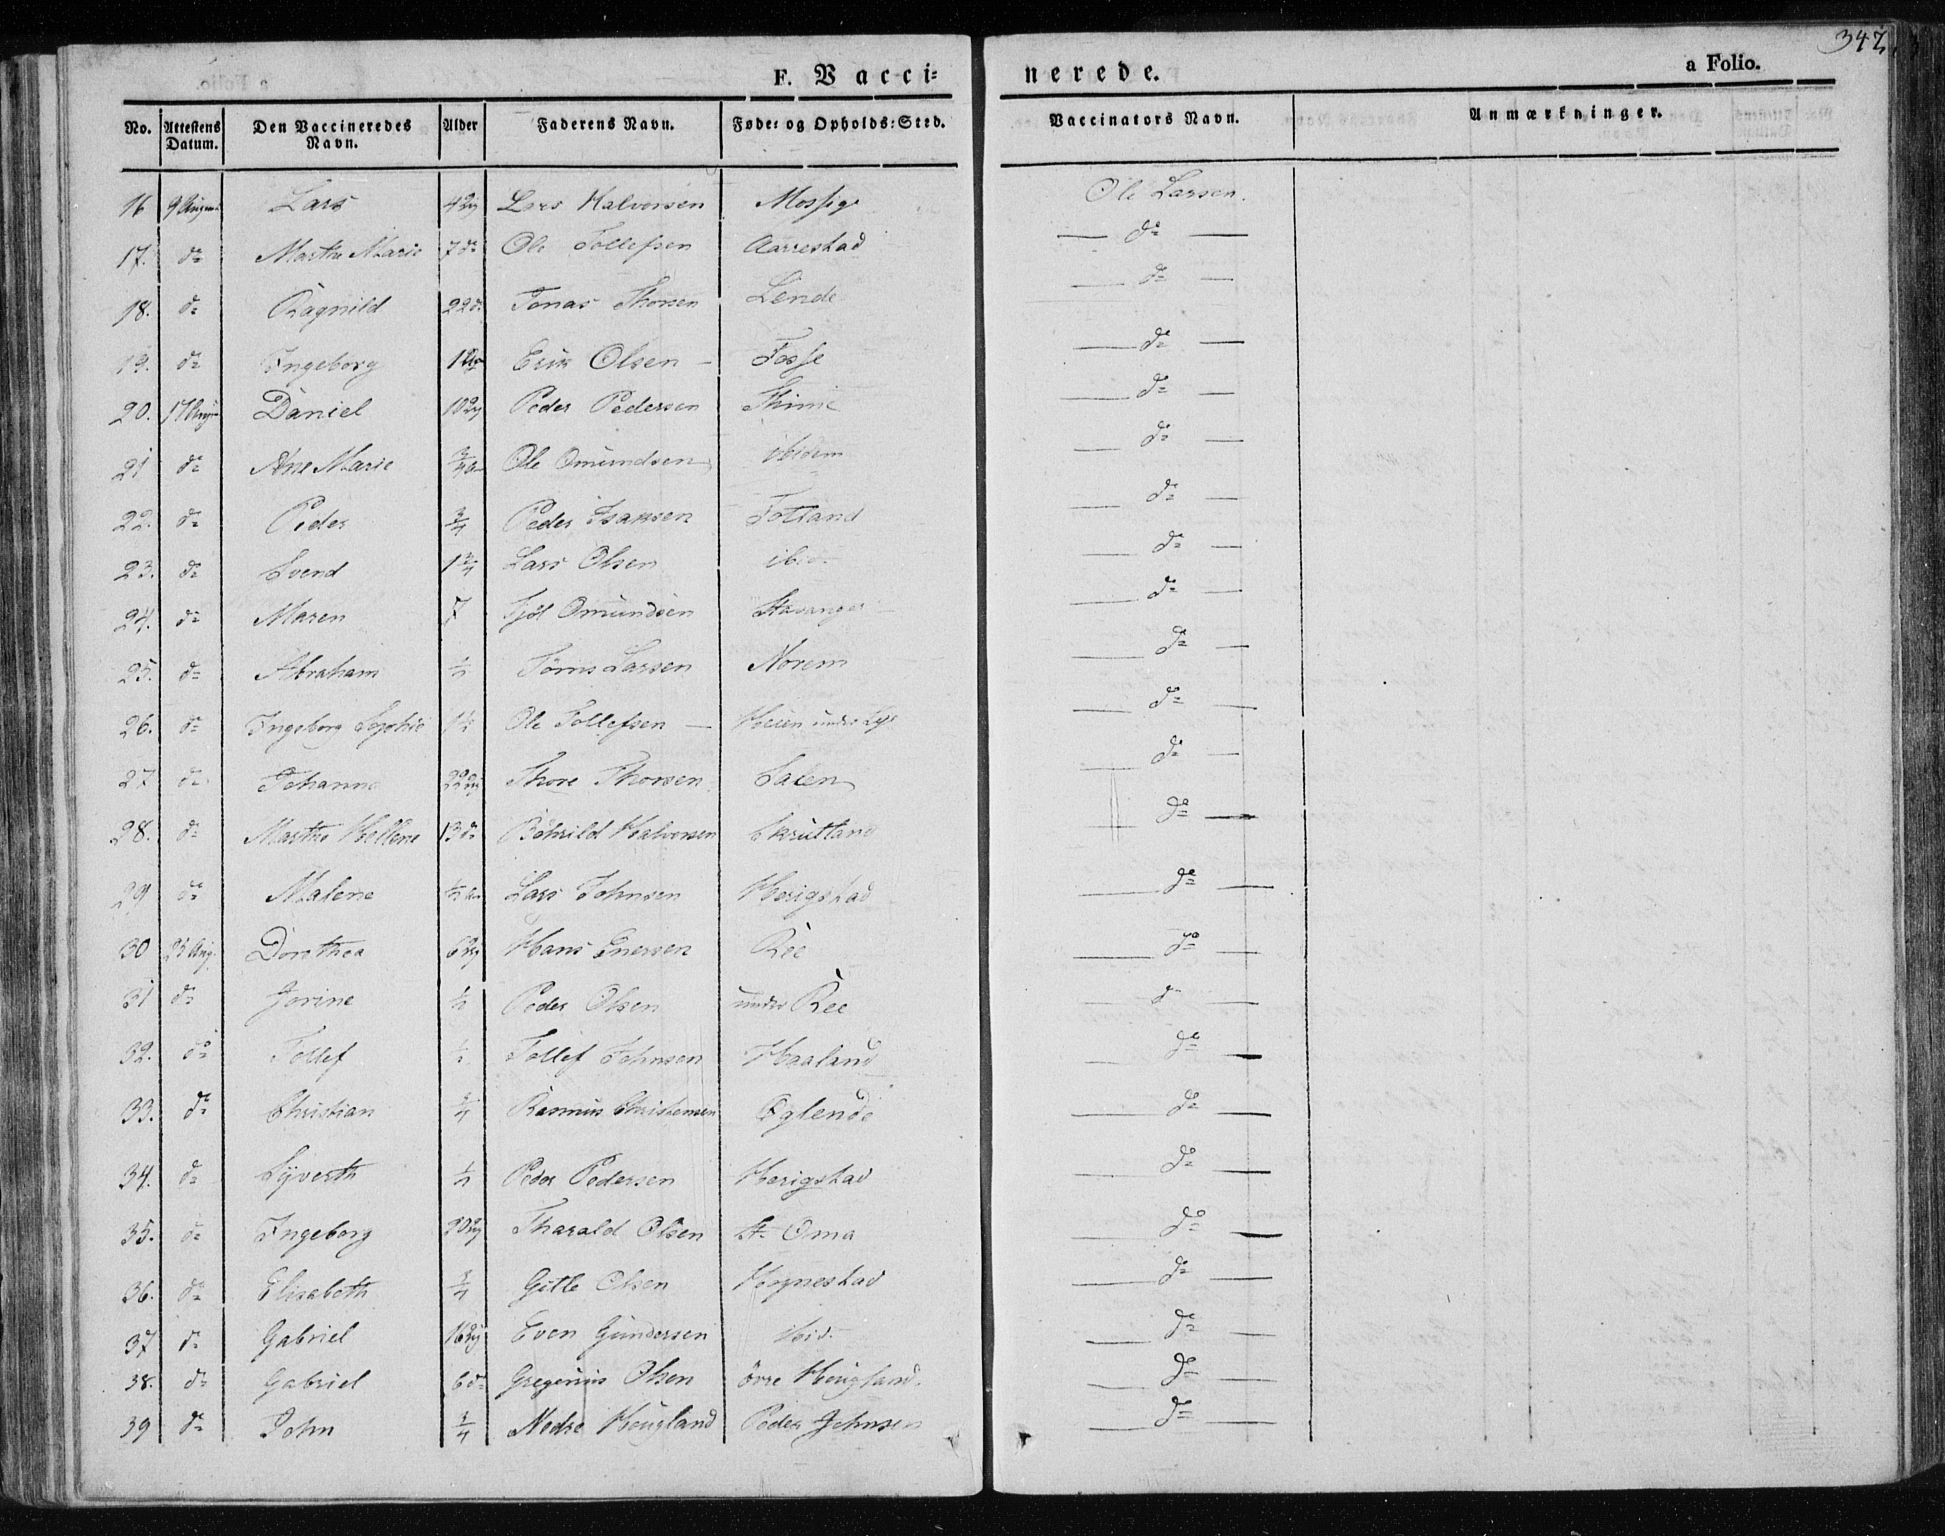 342.
F. Vacci=
nerede.
a Folio.
No. Attestens Datum. Den Vaccineredes Navn. Alder Faderens Navn. Føde: og Opholds: Sted. Vaccinators Navn. Anmærkninger.
16 9 Lars Lars Halvorsen Mossige Ole Larsen.
17. do Marthe Marie 7 do Ole Tollefsen Aarrestad — do —
18. do Ragnild 22 do Jonas Thorsen Lende — do —
19. do Ingeborg Erik Olsen — Fosse — do —
20. 17 Daniel Peder Pedersen Thime — do —
21 do Ane Marie Ole Omundsen ibidem — do —
22. do Peder 3/4 Peder Isaksen Fotland — do —
23. do Svend 1 3/4 Lars Olsen — do —
24. do Maren 7 Omundsen Stavanger — do —
25. do Abraham 1/2 Larsen Norem — do —
26. do Ingeborg Sophie Ole Tollefsen — under Lye — do —
27 do Johanne Thore Thorsen — do —
28. do Marthe Hellene 13 do Halvorsen Skrutland — do —
29 do Malene Lars Johnsen Herigstad — do —
30 23 Aug. Dorothea Hans Enersen Ree — do —
31 do Jorine 1/2 Peder Olsen under Ree — do —
32. do Tollef 1/2 Tollef Johnsen Haaland — do —
33. do Christian 3/4 Rasmus Christensen Eglende — do —
34. do Syverth 1/2 Peder Pedersen Herigstad — do —
35. do Ingeborg Tharald Olsen St. Oma — do —
36. do Elisabeth 3/4 Gitle Olsen Hognestad — do —
37 do Gabriel Even Gundersen ibid. — do —
38. do Gabriel 6 do Gregorius Olsen övre Heugland. — do —
39 do John 3/4 Nedre Heugland Peder Johnsen — do —